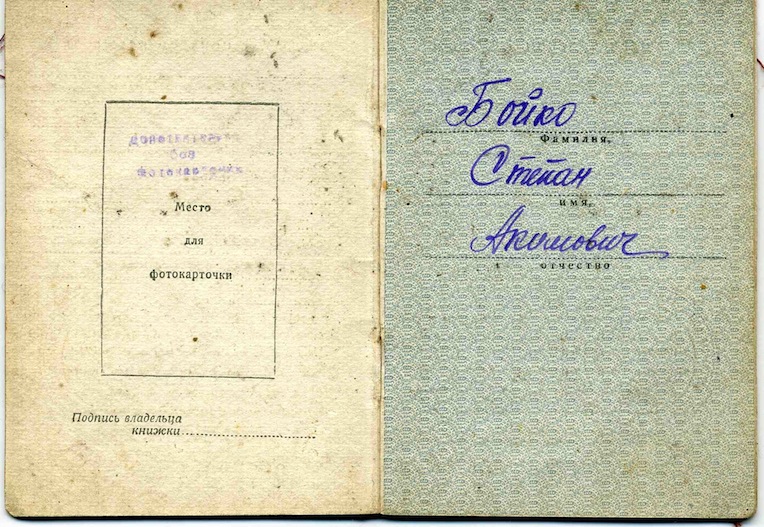 Действительно
без
фотокарточки
Место
для
фотокарточки
Подпись владельца
книжки
Бойко
Фамилия,
Степан
имя,
Акимович
отчество